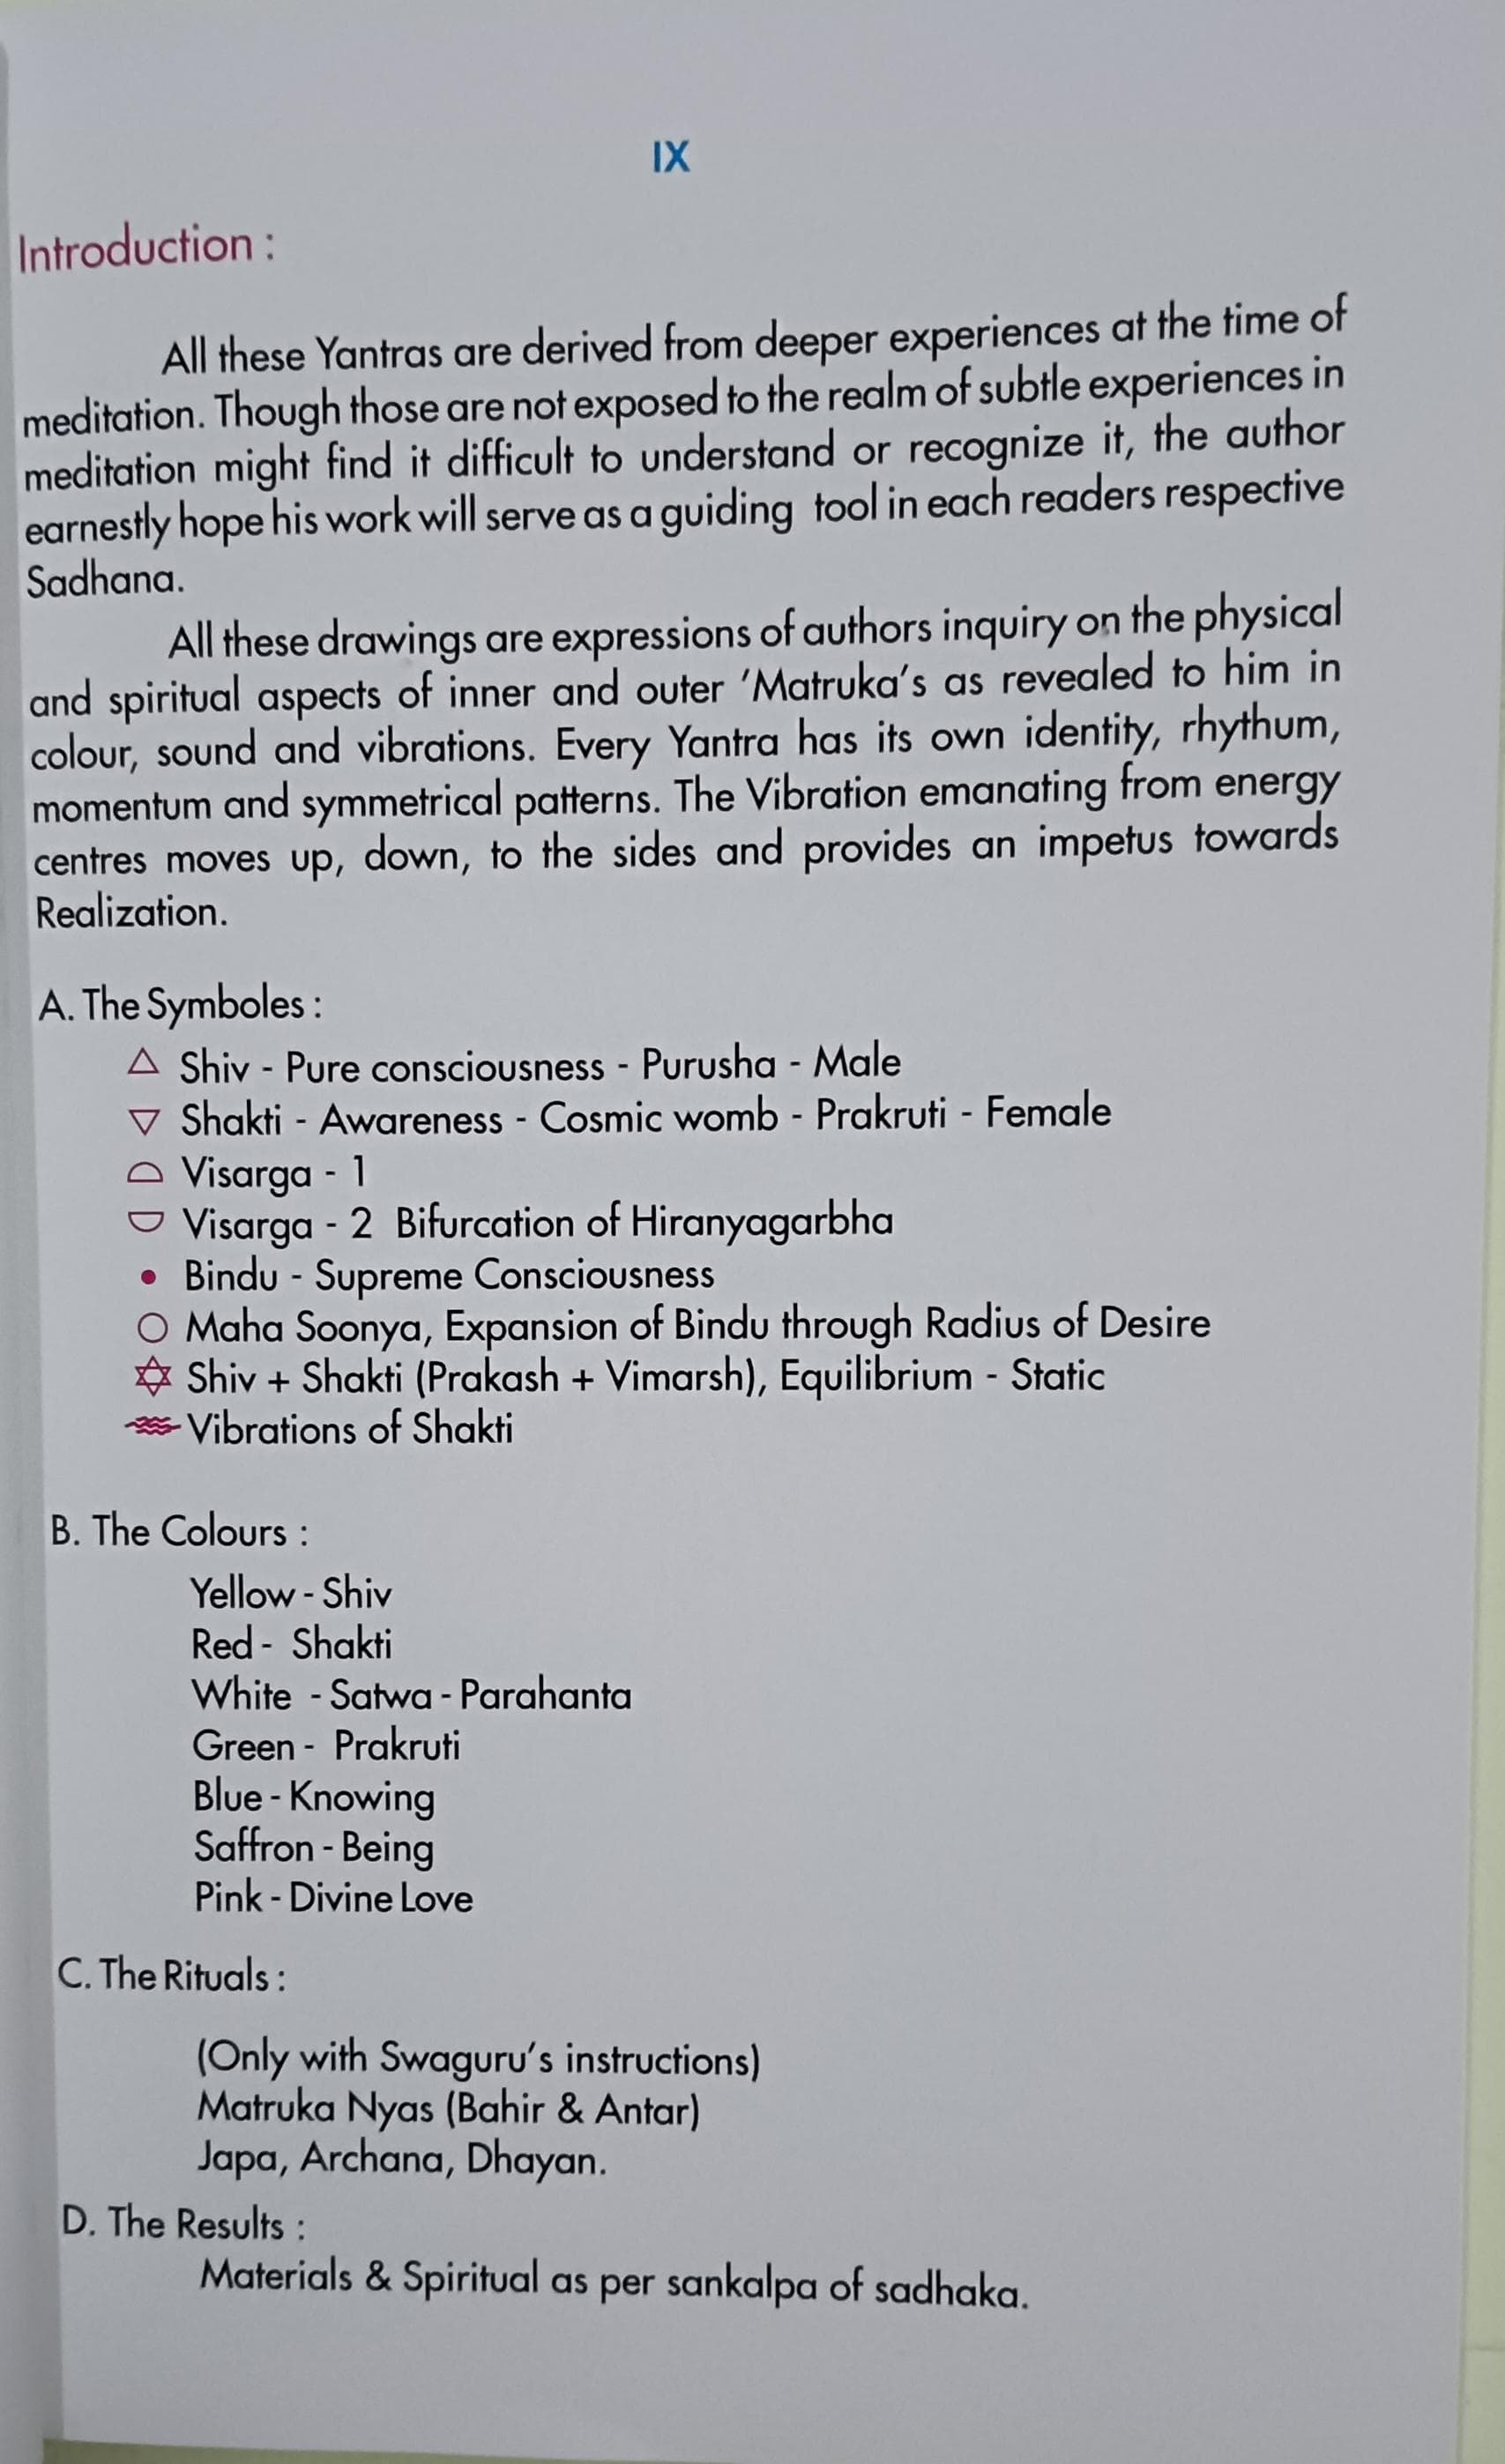 IX
Introduction :
All these Yantras are derived from deeper experiences at the time of
meditation. Though those are not exposed to the realm of subtle experiences in
meditation might find it difficult to understand or recognize it, the author
earnestly hope his work will serve as a guiding tool in each readers respective
Sadhana.
All these drawings are expressions of authors inquiry on the physical
and spiritual aspects of inner and outer 'Matruka's as revealed to him in
colour, sound and vibrations. Every Yantra has its own identity, rhythum,
momentum and symmetrical patterns. The Vibration emanating from energy
centres moves up, down, to the sides and provides an impetus towards
Realization.
A. The Symboles :
△ Shiv - Pure consciousness - Purusha - Male
▽ Shakti - Awareness - Cosmic womb - Prakruti - Female
Visarga - 1
Visarga - 2 Bifurcation of Hiranyagarbha
• Bindu - Supreme Consciousness
○ Maha Soonya, Expansion of Bindu through Radius of Desire
✡ Shiv + Shakti (Prakash + Vimarsh), Equilibrium - Static
Vibrations of Shakti
B. The Colours :
Yellow - Shiv
Red - Shakti
White - Satwa - Parahanta
Green - Prakruti
Blue - Knowing
Saffron - Being
Pink - Divine Love
C. The Rituals :
(Only with Swaguru's instructions)
Matruka Nyas (Bahir & Antar)
Japa, Archana, Dhayan.
D. The Results :
Materials & Spiritual as per sankalpa of sadhaka.